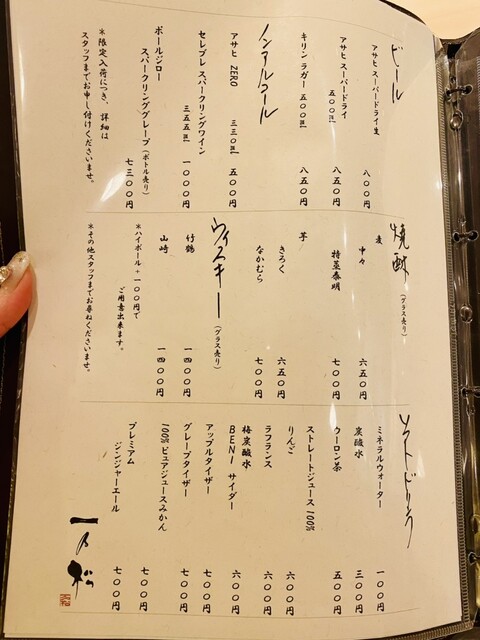 ビール
アサヒ スーパードライ生 八〇〇円
アサヒ スーパードライ 五〇〇㎖ 八五〇円
キリン ラガー 五〇〇㎖ 八五〇円
ノンアルコール
アサヒ ZERO 三三〇㎖ 五〇〇円
セレブレ スパークリングワイン 三五五㎖ 一〇〇〇円
ポールジロー
スパークリンググレープ (ボトル売り) 七三〇〇円
※限定入荷につき、詳細は
スタッフまでお申し付けくださいませ。
焼酎 (グラス売り)
麦
中々 六五〇円
特蒸泰明 七〇〇円
芋
きろく 六五〇円
なかむら 七〇〇円
ウイスキー (グラス売り)
竹鶴 一四〇〇円
山崎 一四〇〇円
※ハイボール+一〇〇円で
ご用意出来ます。
※その他スタッフまでお尋ねくださいませ。
ソフトドリンク
ミネラルウォーター 一〇〇円
炭酸水 三〇〇円
ウーロン茶 五〇〇円
ストレートジュース 100%
りんご 六〇〇円
ラフランス 六〇〇円
梅炭酸水
BENI サイダー 六〇〇円
アップルタイザー 七〇〇円
グレープタイザー 七〇〇円
100% ピュアジュースみかん 七〇〇円
プレミアム
ジンジャーエール 七〇〇円
一乃松